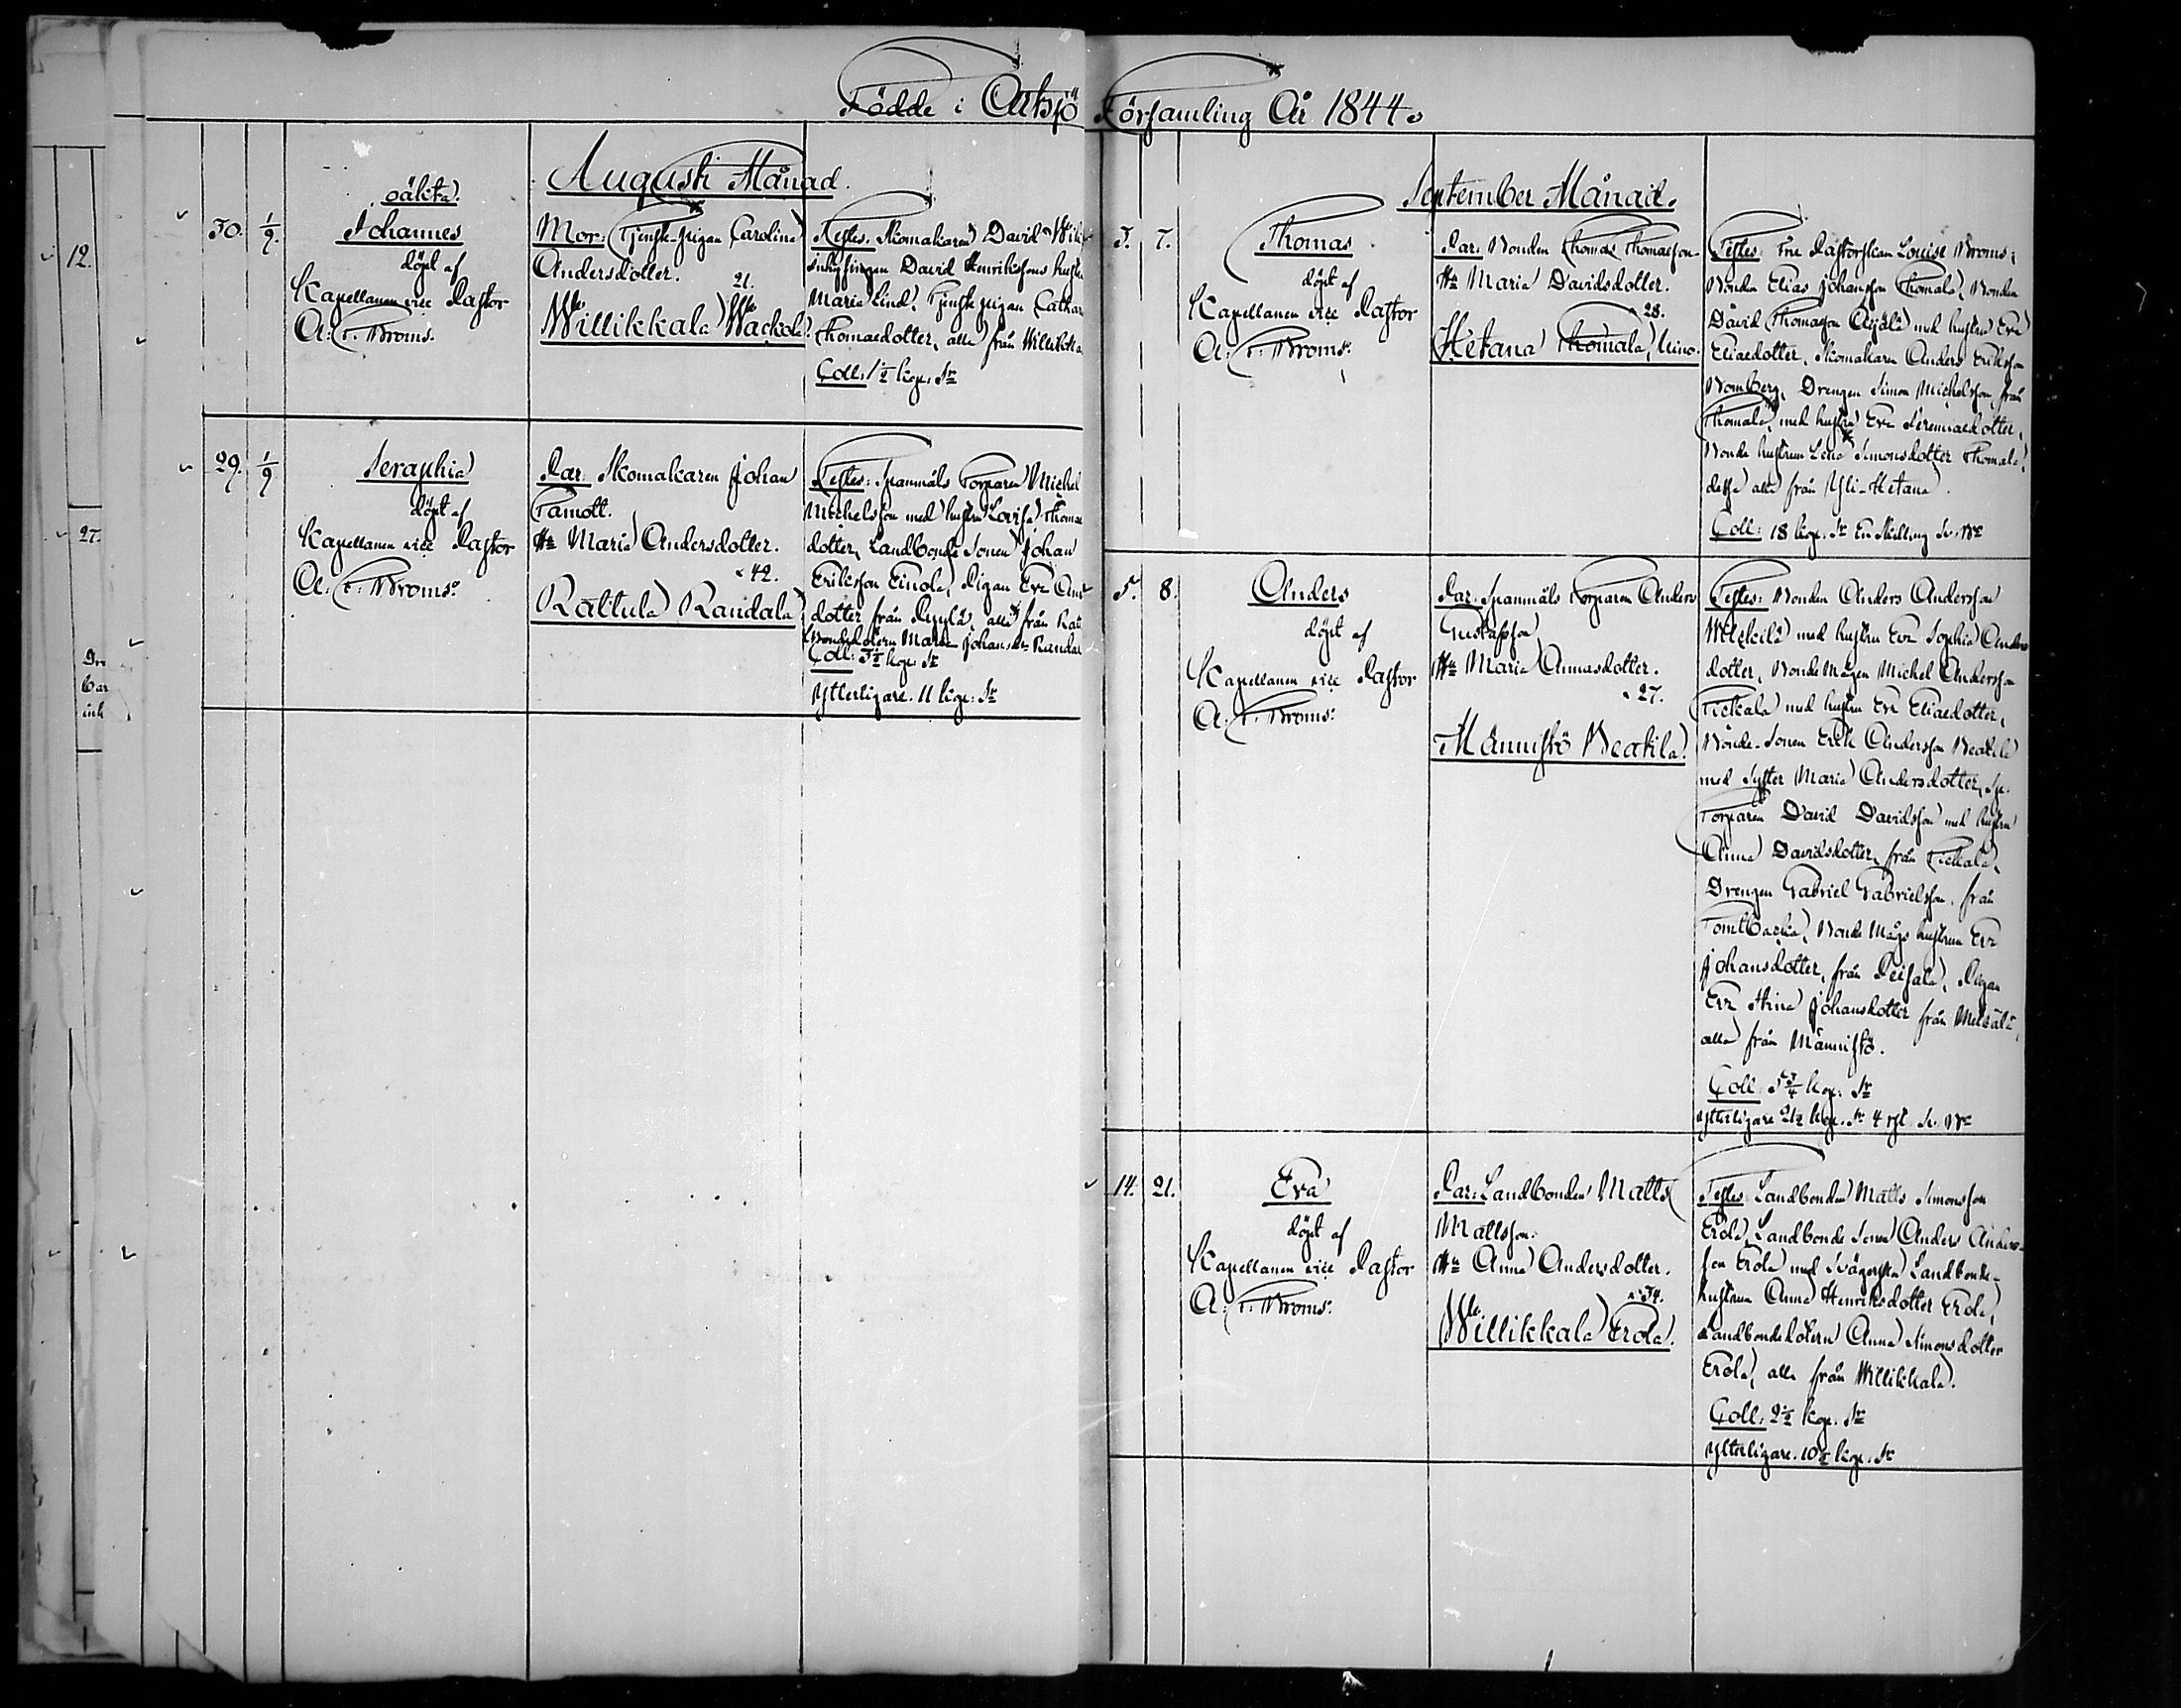 Födde i Artsjö Församling År 1844.
12.
27.
Augusti Månad.
oäkta.
30. 1/9. Johannes
döpt af
Kapellanen vice Pastor
A: F. Broms.
Mor: Tjenste-pigan Carolina
Andersdotter.
21.
Willikkala Wackola.
Testes: Skomakaren David
inhysingen David Henrikssons hustru
Maria Lind, Tjenste pigan Cathar
Thomasdotter, alla från Willikka
Coll: 1 1/2 kop. Sr
29. 1/9 Seraphia
döpt af
Kapellanen vice Pastor
A. F. Broms.
Par. Skomakaren Johan
Tamott.
Hu Maria Andersdotter.
42.
Rattula Randala
Testes: Spanmåls Torparen Michel
Michelsson med hustru Lovisa Thomas
dotter, Landbonde Sonen Johan
Eriksson Einola, Pigan Eva
dotter från alla från Rat
Bondedotern Maria Johansdr Randal
Coll: kop. Sr
Ytterligare. 11 kop: Sr
September Månad.
3. 7. Thomas
döpt af
Kapellanen vice Pastor
A: F. Broms.
Par. Bonden Thomas Thomasson
Hu Maria Davidsdotter.
28.
Hetana Thomala,
Testes: Fru Pastorskan Louise Broms,
Bonden Elias Johansson Thomala, Bonden
David Thomasson med hustru Eva
Eliaedotter, Skomakaren Anders Eriksson
Blomberg, Drengen Simon Michelsson, från
Thomala, med hustru Eva Jeremiaedotter,
Bonde hustrun Lena Simonsdotter Thomala
desse alla från Yli-Hetana.
Coll: 18 kop. Sr En Skilling Sv. Bco
5. 8. Anders
döpt af
Kapellanen vice Pastor
A: F. Broms.
Par. Spanmåls Torparen Anders
Gustafsson
Hu Maria Annasdotter.
27.
Männistö Beatila.
Testes: Bonden Anders Andersson
med hustru Eva Sophia Anders
dotter, Bonde Mågen Michel Andersson
med hustru Eva Eliaedotter,
Bonde-Sonen Erik Andersson Beatila
med Syster Maria Andersdotter, Sp.
Torparen David Davidsson med hustru
Anna Davidsdotter, från
Drengen Gabriel Gabrielsson, från
Tomtbacka, Bonde Mågs hustrun Eva
Johansdotter, från Peisala, Pigan
Eva Stina Johansdotter från
alla från Männistö.
Coll: 5 3/4 kop: Sr
Ytterligare 2 1/2 kop. Sr 4 rst. Sv. Bco
14. 21. Eva
döpt af
Kapellanen vice Pastor
A: F. Broms.
Par: Landbonden Matts
Mattsson.
Hu Anna Andersdotter.
34.
Willikkala Erola.
Testes: Landbonden Matts Simonsson
Erola, Landbonde Sonen Anders Anders-
son Erola med Svägerska Landbonde-
hustrun Anna Henriksdotter Erola,
Landbondedotern Anna Simonsdotter
Erola, alla från Willikkala.
Coll: 2 1/2 kop. Sr
Ytterligare. 10 1/2 kop. Sr